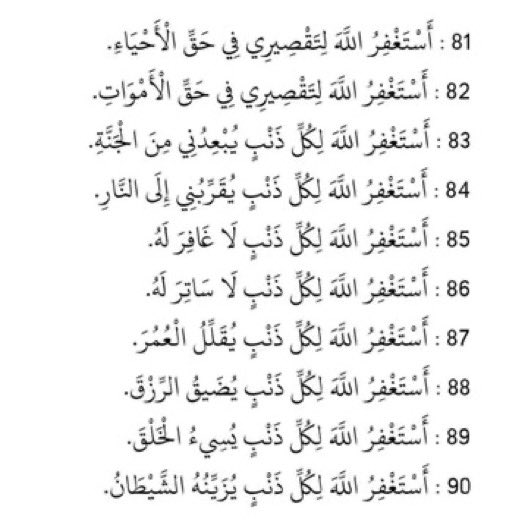 81 : أَسْتَغْفِرُ اللَّهَ لِتَقْصِيرِي فِي حَقِّ الْأَحْيَاءِ.
82 : أَسْتَغْفِرُ اللَّهَ لِتَقْصِيرِي فِي حَقِّ الْأَمْوَاتِ.
83 : أَسْتَغْفِرُ اللَّهَ لِكُلِّ ذَنْبٍ يُبْعِدُنِي مِنَ الْجَنَّةِ.
84 : أَسْتَغْفِرُ اللَّهَ لِكُلِّ ذَنْبٍ يُقَرِّبُنِي إِلَى النَّارِ.
85 : أَسْتَغْفِرُ اللَّهَ لِكُلِّ ذَنْبٍ لَا غَافِرَ لَهُ.
86 : أَسْتَغْفِرُ اللَّهَ لِكُلِّ ذَنْبٍ لَا سَاتِرَ لَهُ.
87 : أَسْتَغْفِرُ اللَّهَ لِكُلِّ ذَنْبٍ يُقَلِّلُ الْعُمُرَ.
88 : أَسْتَغْفِرُ اللَّهَ لِكُلِّ ذَنْبٍ يُضَيقُ الرِّزْقَ.
89 : أَسْتَغْفِرُ اللَّهَ لِكُلِّ ذَنْبٍ يُسِيءُ الْخَلْقَ.
90 : أَسْتَغْفِرُ اللَّهَ لِكُلِّ ذَنْبٍ يُزَيِّنُهُ الشَّيْطَانُ.